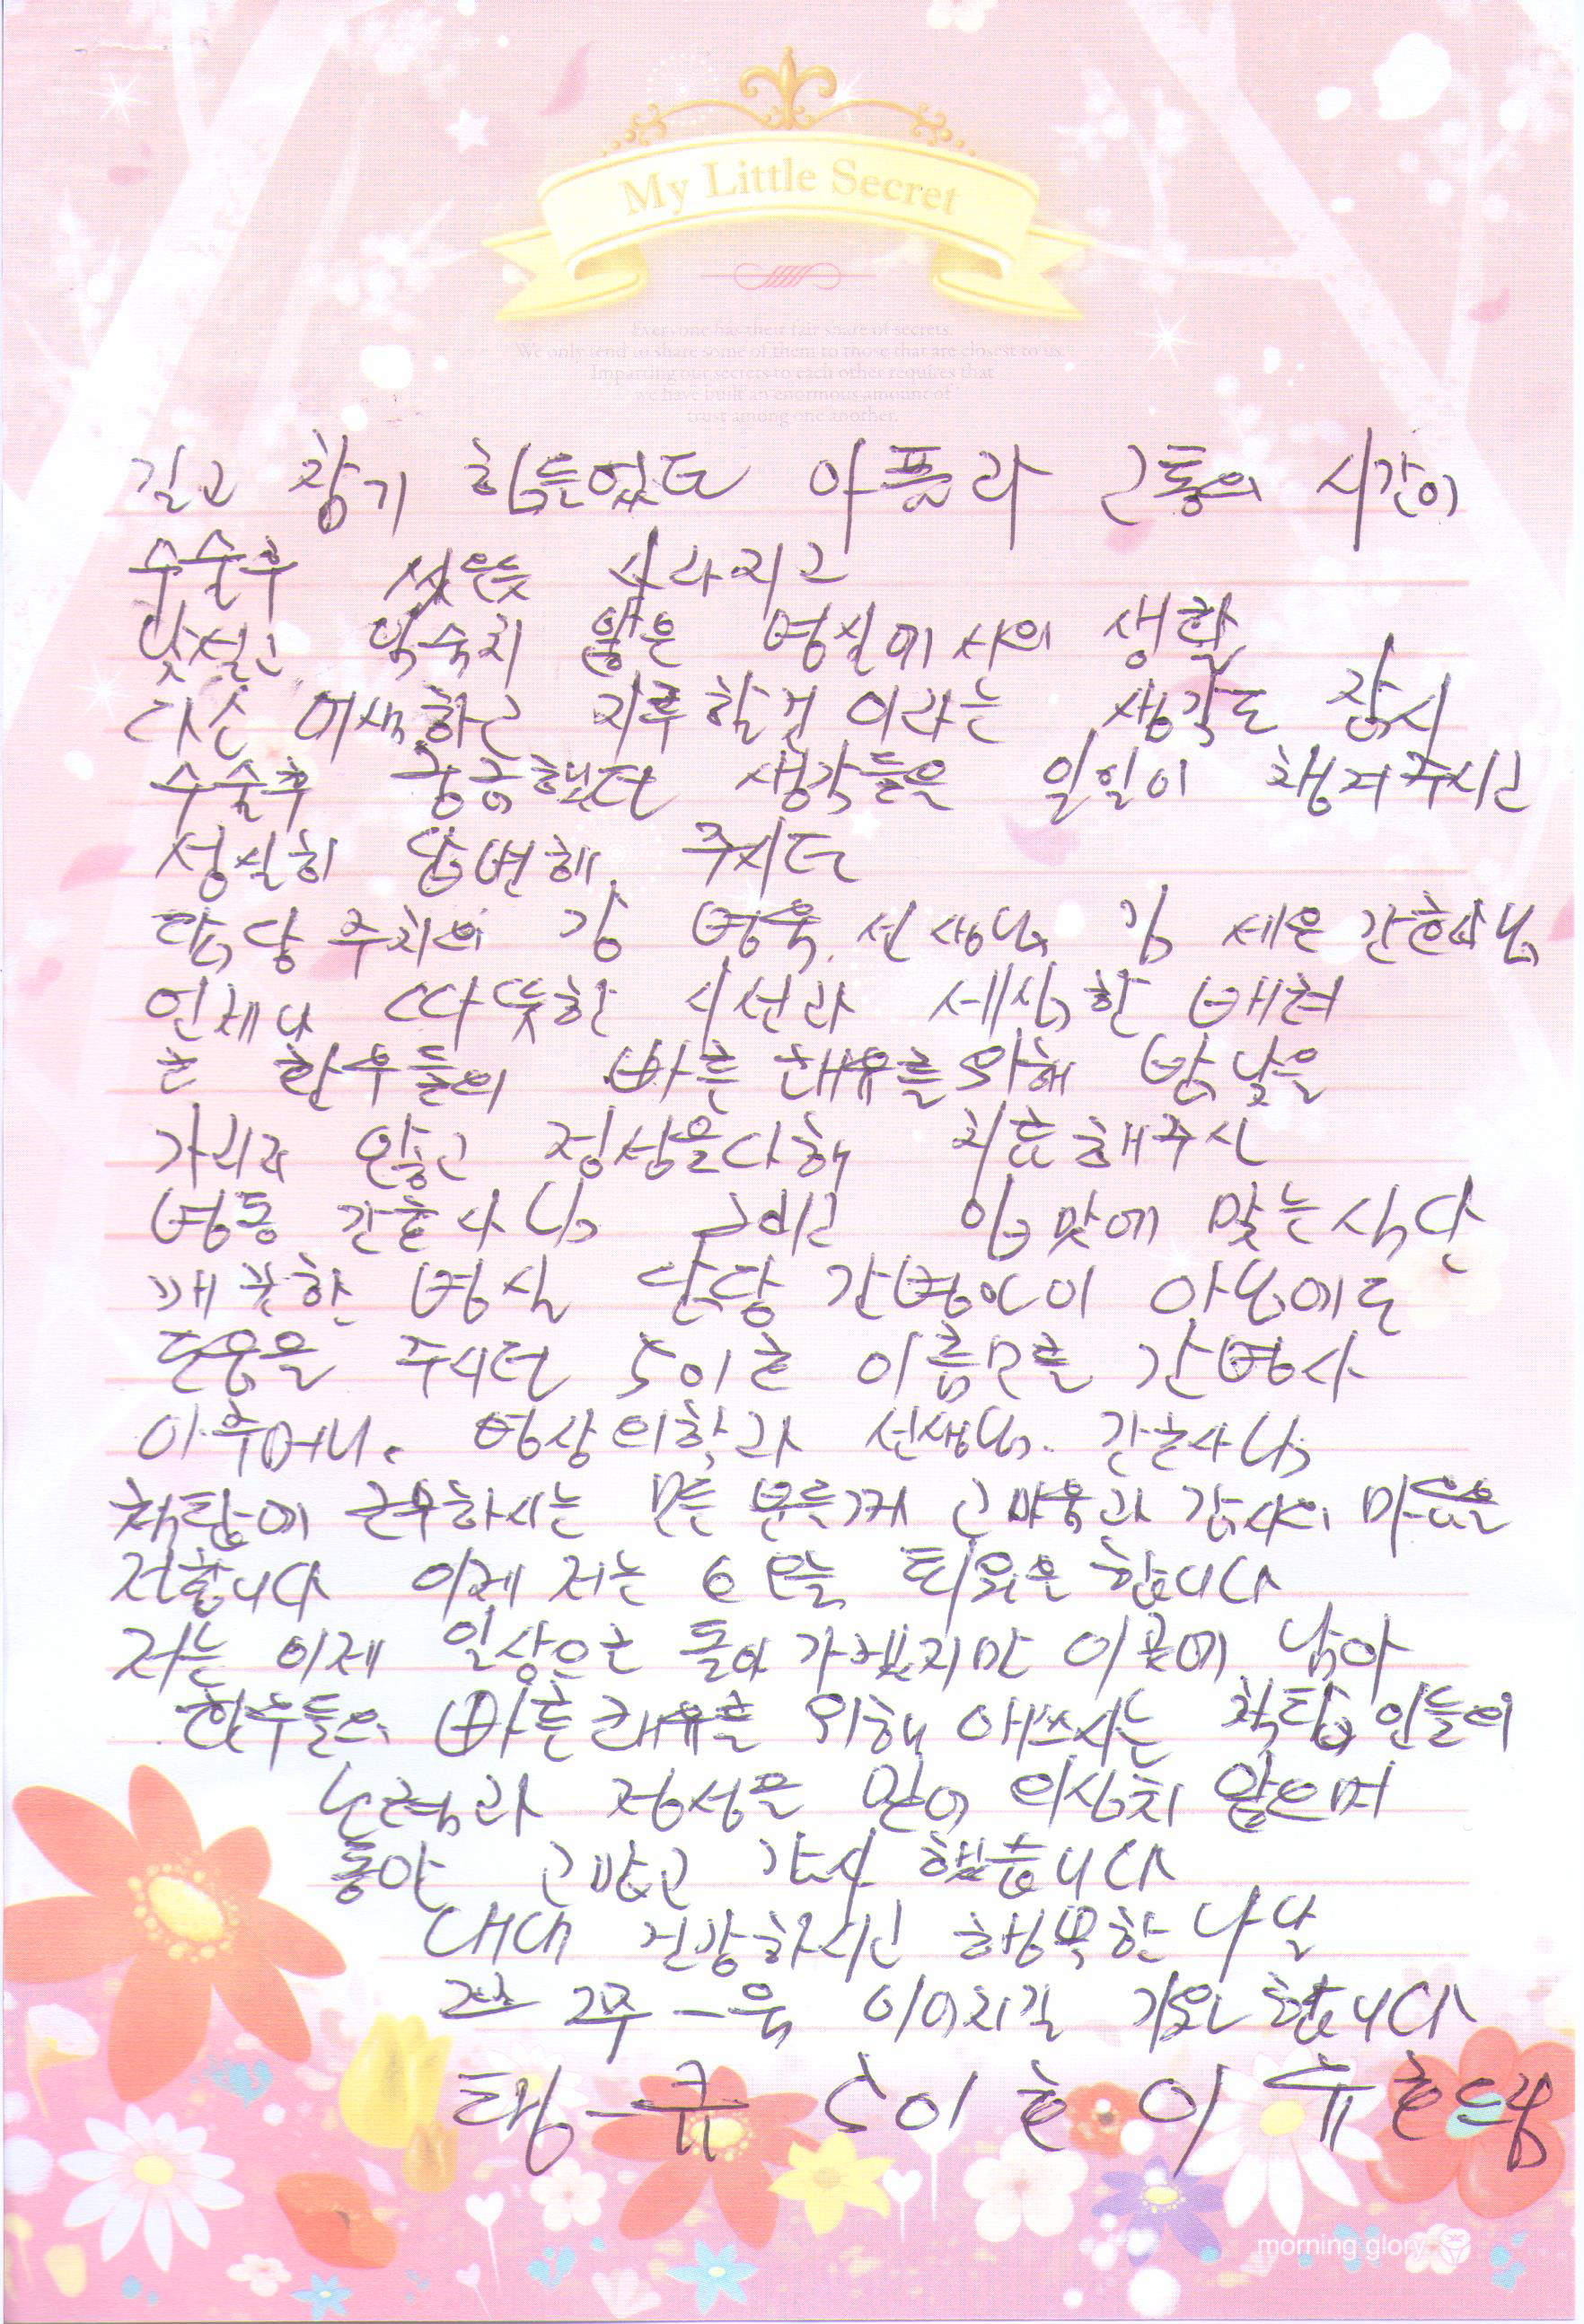 My Little Secret
Everyone has their fair share of secrets.
We only tend to share some of them to those that are closest to us.
Imparting our secrets to each other requires that
we have built an enormous amount of
trust among one another.
길고 참기 힘든었던 아픔과 고통의 시간이
수술후 씻은듯 사라지고
낯설고 익숙치 않은 병실에서의 생활
다소 어색하고 지루할것 이라는 생각도 잠시
수술후 궁금했던 생각들을 일일이 챙겨주시고
성실히 답변해 주시던
담당주치의 강 병욱 선생님 김 세은 간호사님
언제나 따뜻한 시선과 세심한 배려
로 환우들의 빠른 쾌유를 위해 밤낮을
가리지 않고 정성을다해 치료해주신
병동 간호사님 그리고 입맛에 맞는식단
깨끗한 병실 담당 간병인이 아님에도
도움을 주시던 501호 이름모를 간병사
아주머니. 영상의학과 선생님. 간호사님
척탑에 근무하시는 모든 분들께 고마움과 감사의 마음을
전합니다 이제 저는 오늘 퇴원을 합니다
저는 이제 일상으로 돌아 가겠지만 이곳에 남아
환우들의 빠른쾌유를 위해 애쓰시는 척탑인들의
노력과 정성을 믿어 의심치 않으며
동안 고맙고 감사 했습니다
내내 건강하시고 행복한 나날
쭈욱 이어지길 기원합니다
땡-큐 501호 이 드림
morning glory